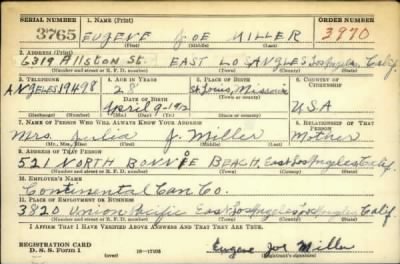 SERIAL NUMBER 1. NAME (Print) ORDER NUMBER
3765 EUGENE JOE MILLER 3970
(First) (Middle) (Last)
2. ADDRESS (Print)
6319 Allston St. EAST LOS ANGELES Los Angeles Calif.
(Number and street or R. F. D. number) (Town) (County) (State)
3. TELEPHONE 4. AGE IN YEARS 5. PLACE OF BIRTH 6. COUNTRY OF CITIZENSHIP
ANGELES 19498 28 St Louis, Missouri
DATE OF BIRTH (Town or county)
April 9-1912 USA
(Exchange) (Number) (Mo.) (Day) (Yr.) (State or country)
7. NAME OF PERSON WHO WILL ALWAYS KNOW YOUR ADDRESS RELATIONSHIP OF THAT PERSON
Mrs. Julia J. Miller Mother
(Mr., Mrs., Miss) (First) (Middle) (Last)
8. ADDRESS OF THAT PERSON
521 NORTH BONNIE BEACH, East Los Angeles Calif.
(Number and street or R. F. D. number) (Town) (County) (State)
10. EMPLOYER'S NAME
Continental Can Co.
11. PLACE OF EMPLOYMENT OR BUSINESS
3820 Union Pacific East Los Angeles Los Angeles Calif.
(Number and street or R. F. D. number) (Town) (County) (State)
I AFFIRM THAT I HAVE VERIFIED ABOVE ANSWERS AND THAT THEY ARE TRUE.
REGISTRATION CARD
D. S. S. Form 1 (over) 16-17105 Eugene Joe Miller
(Registrant's signature)